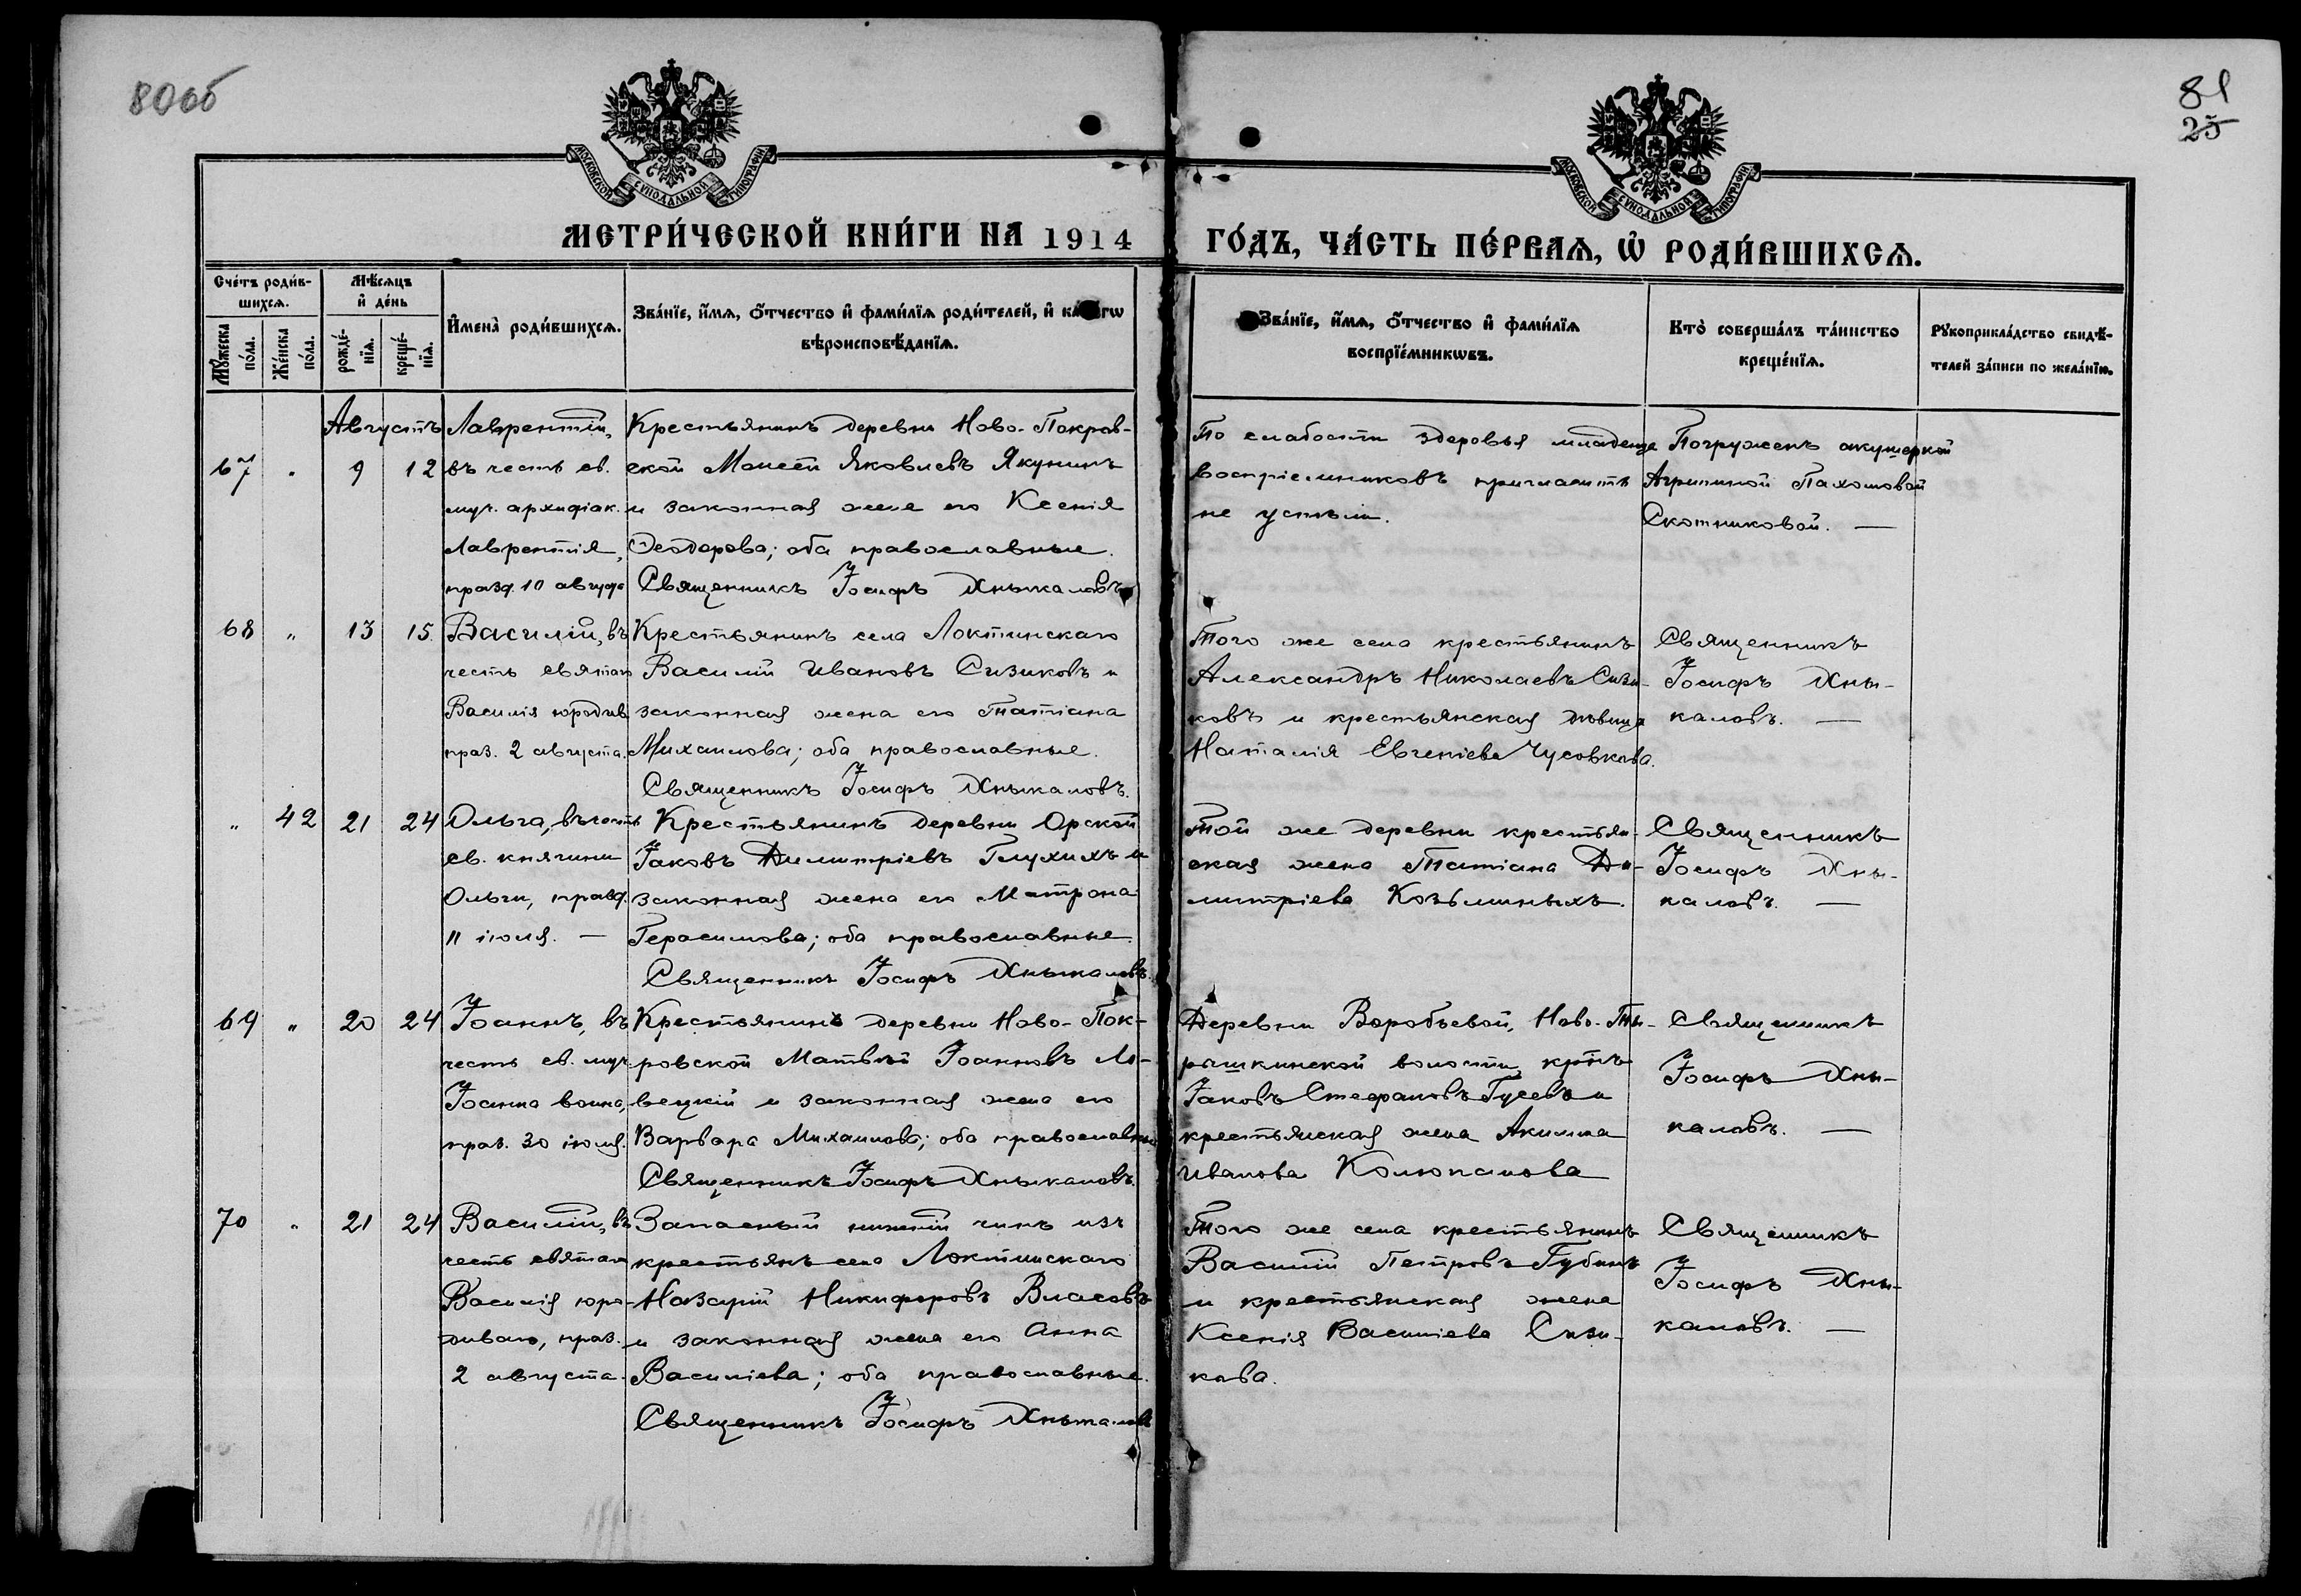 80об
81
25
МОСКОВСКОЙ СѴНОДАЛЬНОЙ ТИПОГРАФІИ
МОСКОВСКОЙ СѴНОДАЛЬНОЙ ТИПОГРАФІИ
МЕТРИ́ЧЕСКОЙ КНИ́ГИ НА 1914
ГО́ДЪ, ЧА́СТЬ ПЕ́РВАѦ, Ѡ҆ РОДИ́ВШИХСѦ.
Сче́тъ роди́в-
шихсѧ.
Мѣ́сѧцъ
и҆ де́нь
Мꙋ́жеска
по́ла.
Же́нска
по́ла.
рожде́-
нїѧ.
креще́-
нїѧ.
И҆мена̀ роди́вшихсѧ.
Зва́нїе, и҆́мѧ, ѻ҆́тчество и҆ фами́лїѧ роди́телей, и҆ ка гѡ
вѣроисповѣ́данїѧ.
Зва́нїе, и҆́мѧ, ѻ҆́тчество и҆ фами́лїѧ
воспрїе́мникѡвъ.
Кто̀ соверша́лъ та́инство
креще́нїѧ.
Рꙋкоприкла́дство свидѣ́-
телей за́писи по жела́нїю.
Августъ
67 " 9 12
Лаврентій,
въ честь св.
муч. архидіак.
Лаврентія,
празд. 10 август
Крестьянинъ деревни Ново-Покров-
ской Моисей Яковлевъ Якунинъ
и законная жена его Ксенія
Ѳеодорова; оба православные.
Священникъ Іосифъ Хныкаловъ
По слабости здоровья младенца
воспріемниковъ пригласить
не успѣли.
Погруженъ акушеркой
Агриппиной Пахомовой
Скотниковой. —
68 " 13 15.
Василій, въ
честь святаго
Василія юродив
праз. 2 августа.
Крестьянинъ села Локтинскаго
Василій Ивановъ Сизиковъ и
законная жена его Татіана
Михаилова; оба православные.
Священникъ Іосифъ Хныкаловъ.
Того же села крестьянинъ
Александръ Николаевъ Сизи-
ковъ и крестьянская дѣвица
Наталія Евгеніева Чусовкова.
Священникъ
Іосифъ Хны-
каловъ. —
" 42 21 24
Ольга, въ честь
св. княгини
Ольги, празд.
11 іюля. —
Крестьянинъ деревни Орской
Іаковъ Димитріевъ Глухихъ и
законная жена его Матрона
Герасимова; оба православные.
Священникъ Іосифъ Хныкаловъ.
Той же деревни крестьян-
ская жена Татіана Ди-
митріева Козьминыхъ.
Священникъ
Іосифъ Хны-
каловъ. —
69 " 20 24
Іоаннъ, въ
честь св. муч
Іоанна воина,
праз. 30 іюля.
Крестьянинъ деревни Ново-Пок-
ровской Матвѣй Іоанновъ Ло-
вецкій и законная жена его
Варвара Михаилова; оба православные
Священникъ Іосифъ Хныкаловъ.
Деревни Воробьевой, Ново-Ты-
рышкинской волости, крнъ
Іаковъ Стефановъ Гусевъ и
крестьянская жена Акилина
Иванова Колюпанова
Священникъ
Іосифъ Хны-
каловъ. —
70 " 21 24
Василій, въ
честь святаго
Василія юро-
диваго, праз.
2 августа.
Запасный нижній чинъ изъ
крестьянъ села Локтинскаго
Назарій Никифоровъ Власовъ
и законная жена его Анна
Василіева; оба православные.
Священникъ Іосифъ Хныкаловъ
Того же села крестьянинъ
Василій Петровъ Губинъ
и крестьянская жена
Ксенія Василіева Сизи-
кова.
Священникъ
Іосифъ Хны-
каловъ. —